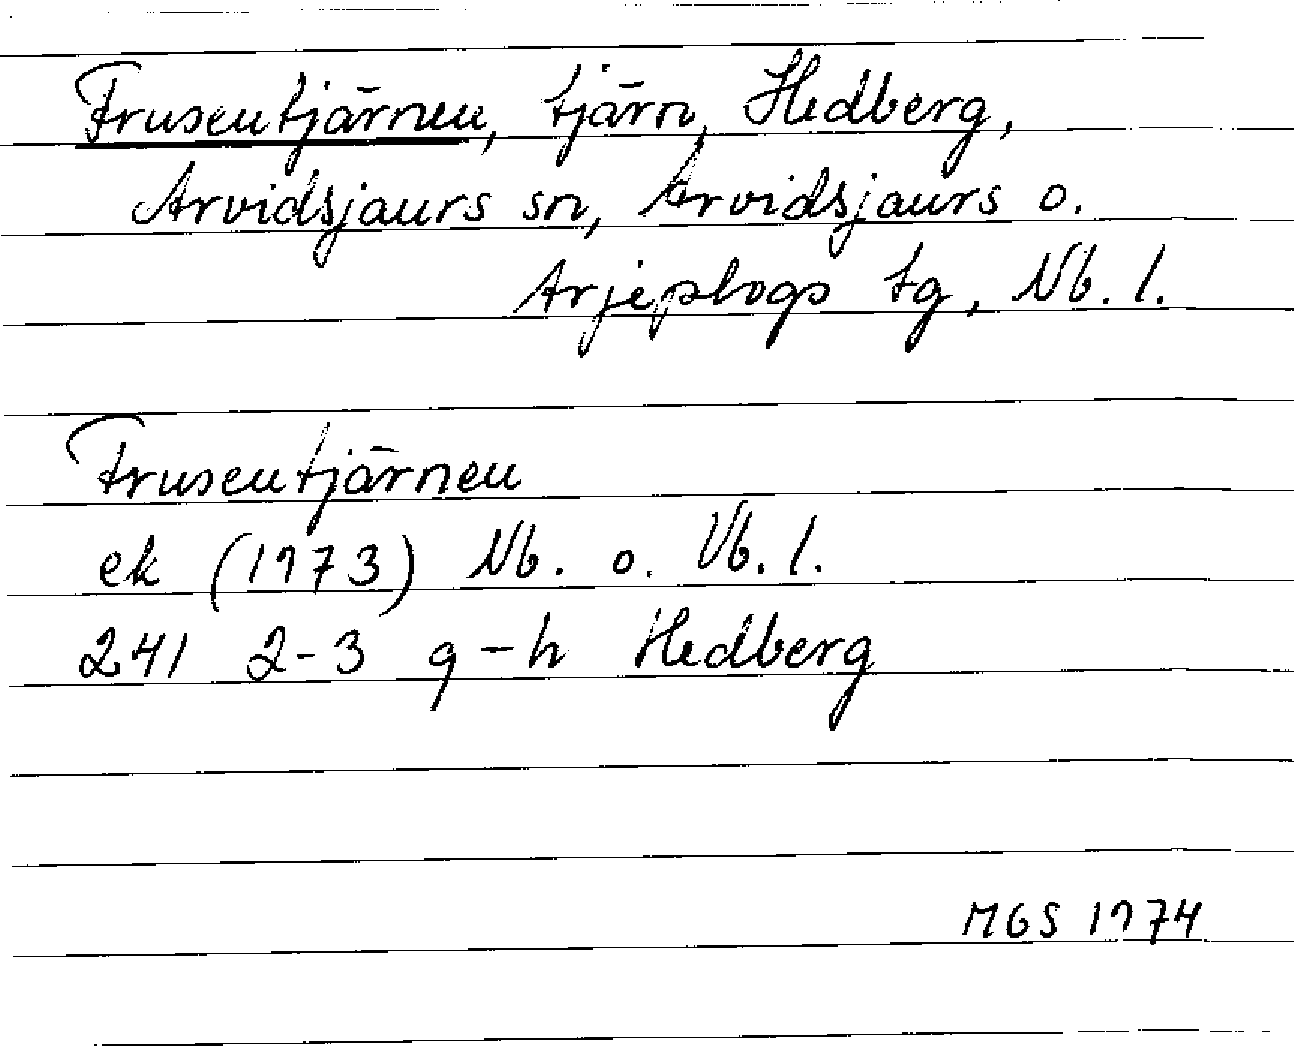 Frusentjärnen, tjärn, Hedberg,
Arvidsjaurs sn, Arvidsjaurs o.
Arjeplogs tg, Nb. l.
Frusentjärnen
ek (1973) Nb. o. Vb. l.
241 2-3 g-h Hedberg
MGS 1974